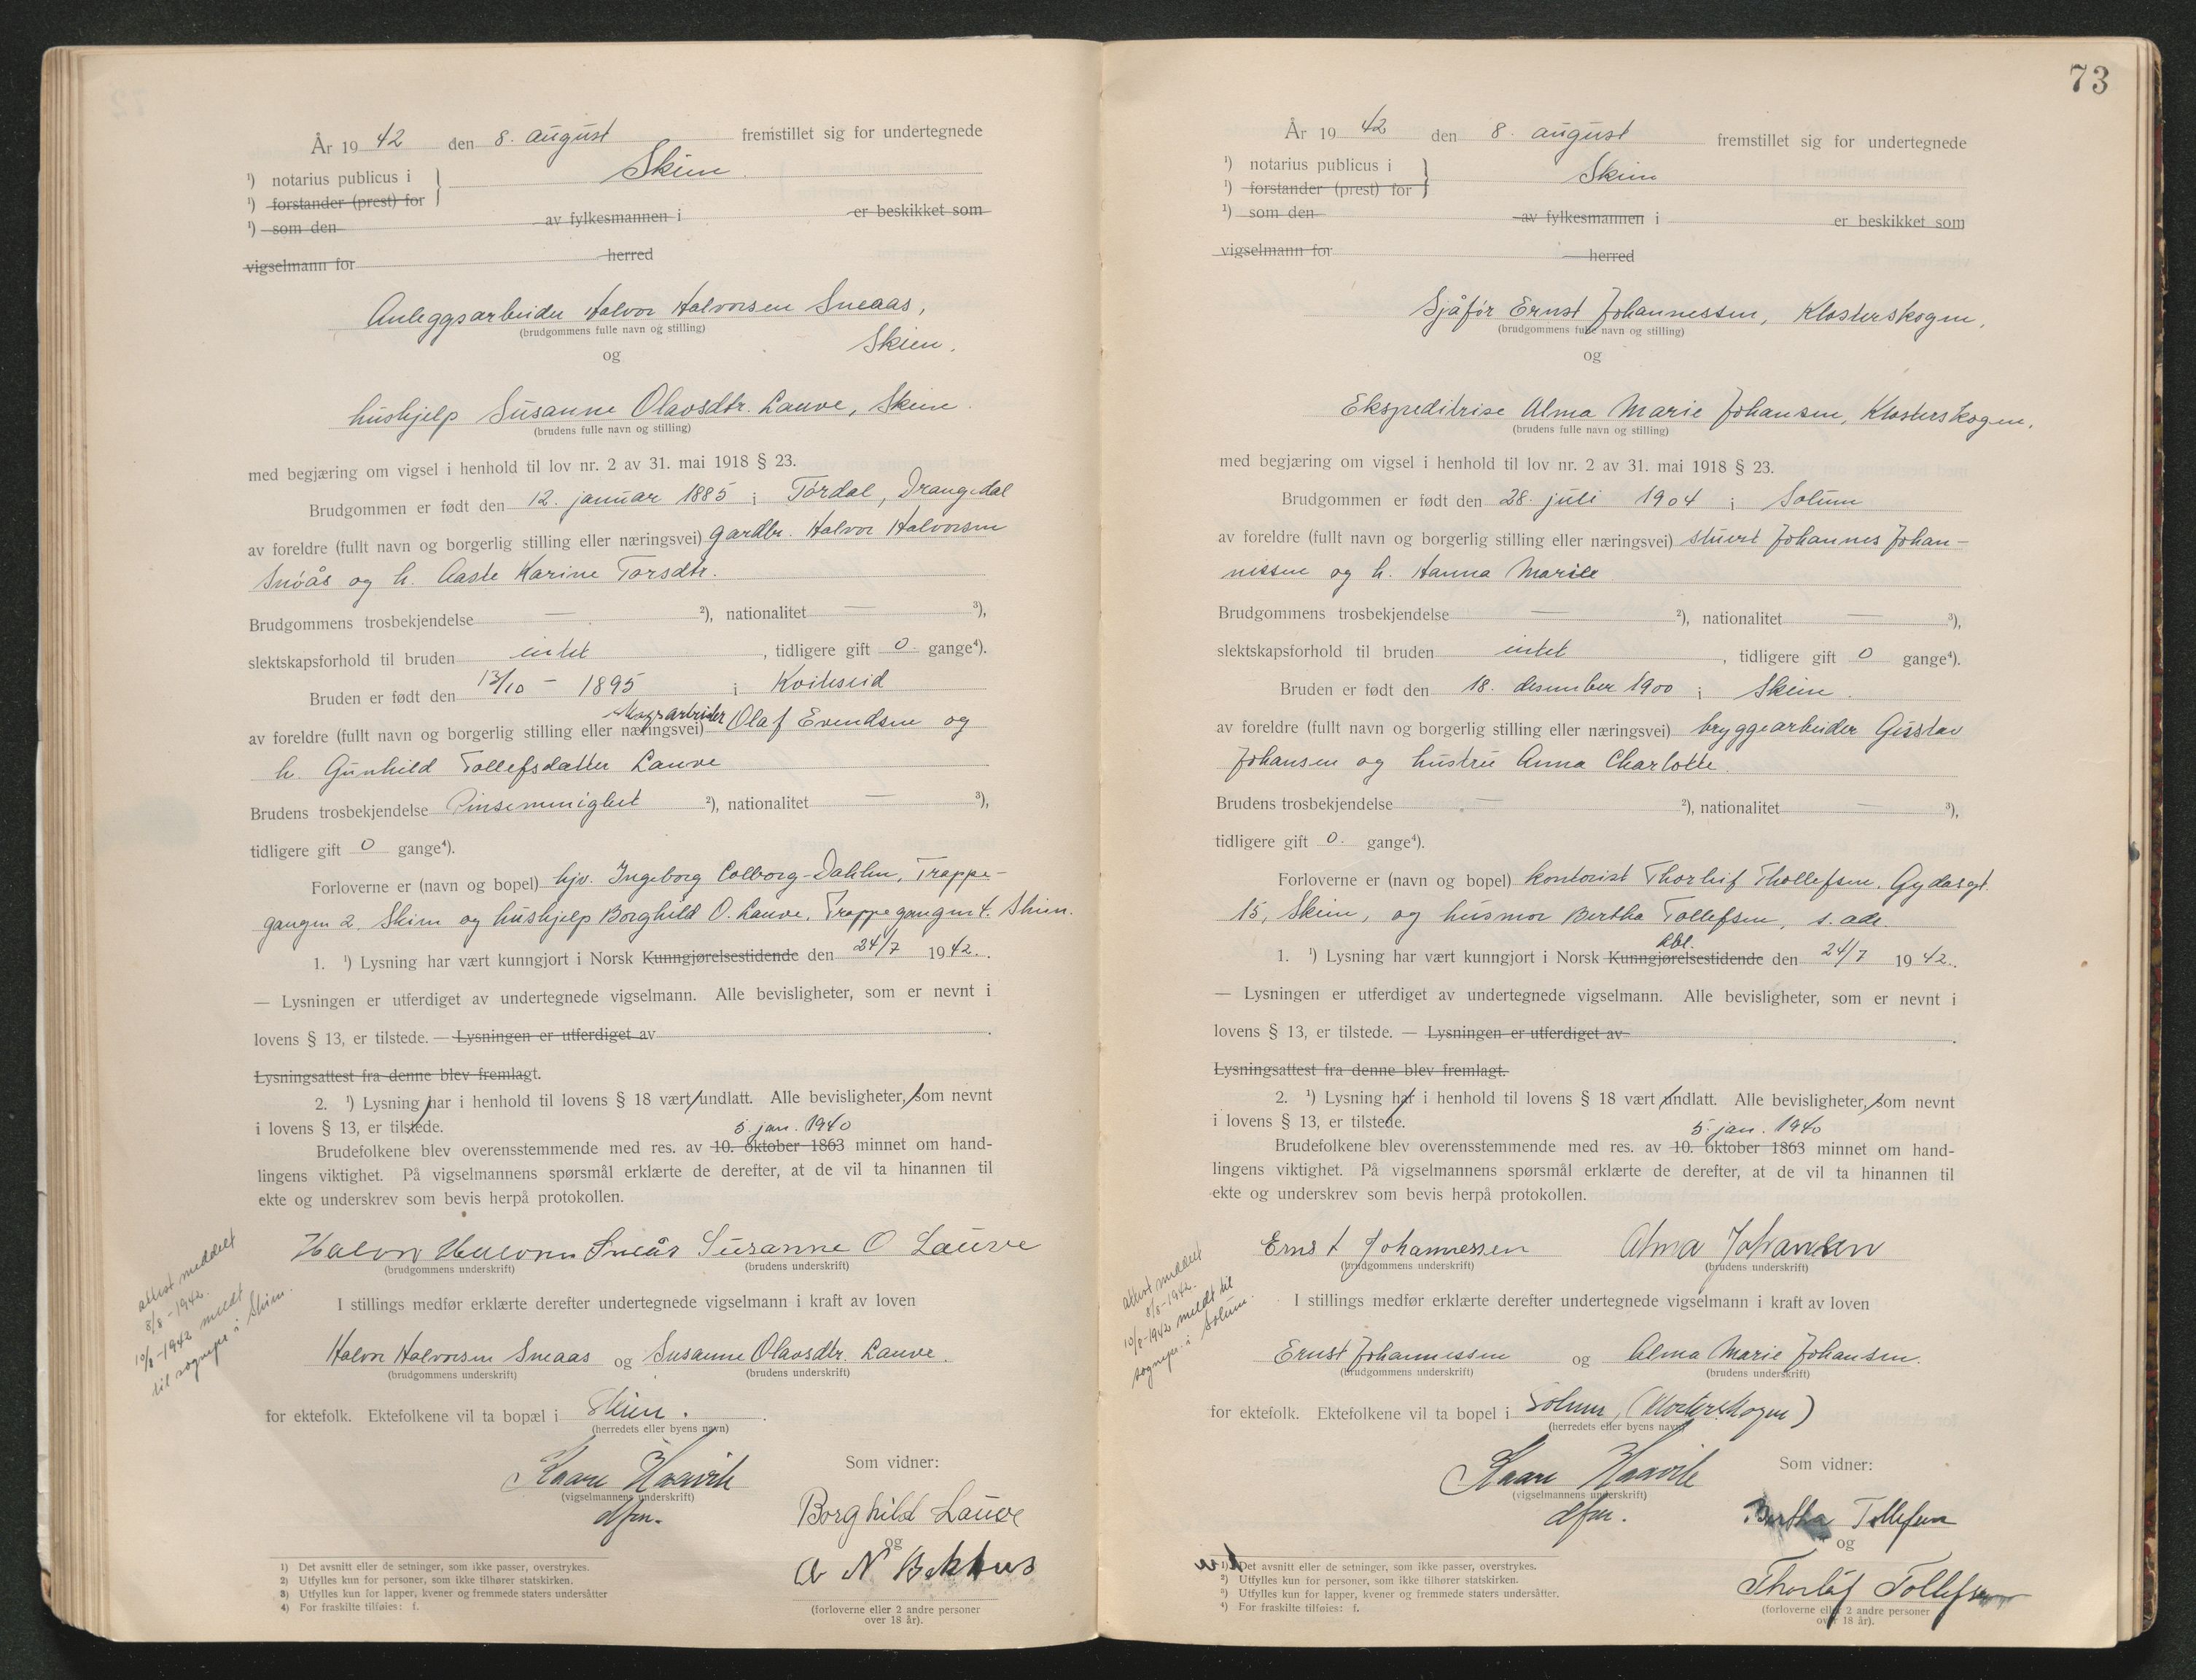 År 19 42 den 8. august fremstillet sig for undertegnede
¹) notarius publicus i } Skien.
¹) forstander (prest) for
¹) som den av fylkesmannen i er beskikket som
vigselmann for herred
Anleggsarbeider Halvor Halvorsen Sneaas,
(brudgommens fulle navn og stilling)
Skien.
og
hushjelp Susanne Olavsdtr. Lauve, Skien.
(brudens fulle navn og stilling)
med begjæring om vigsel i henhold til lov nr. 2 av 31. mai 1918 § 23.
Brudgommen er født den 12. januar 1885 i Tørdal, Drangedal
av foreldre (fullt navn og borgerlig stilling eller næringsvei) gardbr. Halvor Halvorsen
Snöås og h. Aaste Karine Tarsdtr.
Brudgommens trosbekjendelse — ²), nationalitet — ³),
slektskapsforhold til bruden intet, tidligere gift 0 gange⁴).
Bruden er født den 13/10 - 1895 i Kviteseid
av foreldre (fullt navn og borgerlig stilling eller næringsvei) skogsarbeider Olaf Evendsen og
h. Gunhild Tollefsdatter Lauve
Brudens trosbekjendelse Pinsemenighet ²), nationalitet — ³),
tidligere gift 0 gange⁴).
Forloverne er (navn og bopel) hjv. Ingeborg Colborg-Dahlen, Trappe-
gangen 2, Skien og hushjelp Borghild O. Lauve, Trappegangen 4. Skien.
1. ¹) Lysning har vært kunngjort i Norsk Kunngjørelsestidende den 24/7 1942.
— Lysningen er utferdiget av undertegnede vigselmann. Alle bevisligheter, som er nevnt i
lovens § 13, er tilstede. — Lysningen er utferdiget av
Lysningsattest fra denne blev fremlagt.
2. ¹) Lysning har i henhold til lovens § 18 vært undlatt. Alle bevisligheter, som nevnt
i lovens § 13, er tilstede. 5. jan. 1940
Brudefolkene blev overensstemmende med res. av 10. oktober 1863 minnet om hand-
lingens viktighet. På vigselmannens spørsmål erklærte de derefter, at de vil ta hinannen til
ekte og underskrev som bevis herpå protokollen.
Halvor Halvorsen Sneås Susanne O Lauve
(brudgommens underskrift) (brudens underskrift)
attest meddelt
8/8-1942.
10/8-1942 meldt
til sognepr. i Skien.
I stillings medfør erklærte derefter undertegnede vigselmann i kraft av loven
Halvor Halvorsen Sneaas og Susanne Olavsdtr. Lauve.
(brudgommens underskrift) (brudens underskrift)
for ektefolk. Ektefolkene vil ta bopæl i Skien.
(herredets eller byens navn)
Kaare Haavik
(vigselmannens underskrift)
dfm.
Som vidner:
Borghild Lauve
og
(forloverne eller 2 andre personer
over 18 år).
1) Det avsnitt eller de setninger, som ikke passer, overstrykes.
2) Utfylles kun for personer, som ikke tilhører statskirken.
3) Utfylles kun for lapper, kvener og fremmede staters undersåtter
4) For fraskilte tilføies: f.
73
År 19 42 den 8. august fremstillet sig for undertegnede
¹) notarius publicus i } Skien
¹) forstander (prest) for
¹) som den av fylkesmannen i er beskikket som
vigselmann for herred
Sjåfór Ernst Johannessen, Klosterskogen,
(brudgommens fulle navn og stilling)
og
Ekspeditrise Alma Marie Johansen, Klosterskogen.
(brudens fulle navn og stilling)
med begjæring om vigsel i henhold til lov nr. 2 av 31. mai 1918 § 23.
Brudgommen er født den 28. juli 1904 i Solum
av foreldre (fullt navn og borgerlig stilling eller næringsvei) stuert Johannes Johan-
nessen og h. Hanna Marie
Brudgommens trosbekjendelse — ²), nationalitet — ³),
slektskapsforhold til bruden intet, tidligere gift 0 gange⁴).
Bruden er født den 18. desember 1900 i Skien.
av foreldre (fullt navn og borgerlig stilling eller næringsvei) bryggearbeider Gustav
Johansen og hustru Anna Charlotte.
Brudens trosbekjendelse — ²), nationalitet — ³),
tidligere gift 0. gange⁴).
Forloverne er (navn og bopel) kontorist Thorleif Thollefsen, Gydasgt.
15, Skien, og husmor Bertha Tollefsen, s. adr.
1. ¹) Lysning har vært kunngjort i Norsk Kunngjørelsestidende kbl. den 24/7 1942.
— Lysningen er utferdiget av undertegnede vigselmann. Alle bevisligheter, som er nevnt i
lovens § 13, er tilstede. — Lysningen er utferdiget av
Lysningsattest fra denne blev fremlagt.
2. ¹) Lysning har i henhold til lovens § 18 vært undlatt. Alle bevisligheter, som nevnt
i lovens § 13, er tilstede. 5. jan. 1940
Brudefolkene blev overensstemmende med res. av 10. oktober 1863 minnet om hand-
lingens viktighet. På vigselmannens spørsmål erklærte de derefter, at de vil ta hinannen til
ekte og underskrev som bevis herpå protokollen.
Ernst Johannessen Alma Johansen
(brudgommens underskrift) (brudens underskrift)
attest meddelt
8/8-1942.
10/8-1942 meldt til
sognepr. i Solum.
I stillings medfør erklærte derefter undertegnede vigselmann i kraft av loven
Ernst Johannessen og Alma Marie Johansen.
(brudgommens underskrift) (brudens underskrift)
for ektefolk. Ektefolkene vil ta bopel i Solum, (Klosterskogen)
(herredets eller byens navn)
Kaare Haavik
(vigselmannens underskrift)
dfm.
Som vidner:
Bertha Tollefsen
og
Thorleif Tollefsen
(forloverne eller 2 andre personer
over 18 år).
¹) Det avsnitt eller de setninger, som ikke passer, overstrykes.
²) Utfylles kun for personer, som ikke tilhører statskirken.
³) Utfylles kun for lapper, kvener og fremmede staters undersåtter.
⁴) For fraskilte tilføies: f.